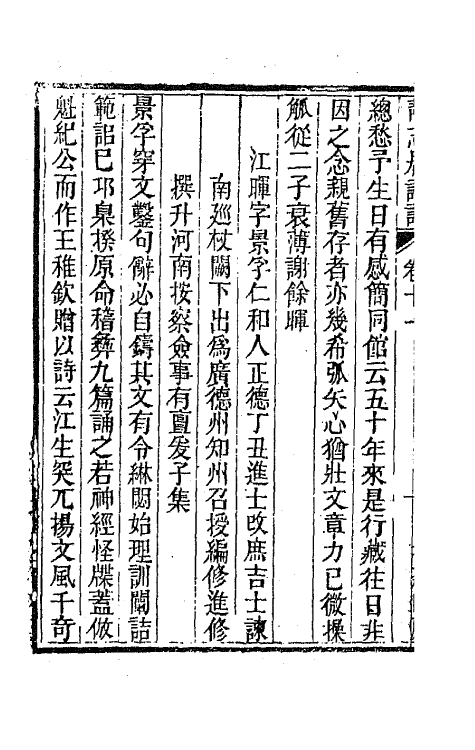 卷十一
總愁予生日有感簡同館云五十年來是行藏往日非
因之念親舊存者亦幾希弧矢心猶壯文章力已微操
觚從二子衰薄謝餘暉
江暉字景孚仁和人正德丁丑進士改庶吉士諫
南廵杖闕下出為廣德州知州召授編修進修
撰升河南按察僉事有亶爰子集
景孚穿文鑿句辭必自鑄其文有令綝閎始理訓闡詰
範詔巳邛臯揆原命稽彝九篇誦之若神經怪牒蓋倣
魁紀公而作王稚欽贈以詩云江生突兀揚文風千奇